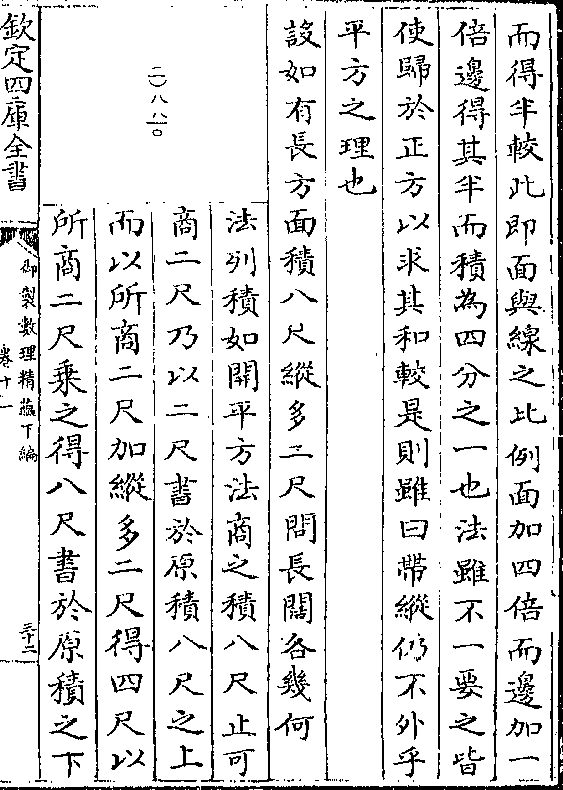 而得半較此即面與線之比例面加四倍而邊加一
倍邊得其半而積為四分之一也法雖不一要之皆
使歸於正方以求其和較是則雖曰帶縱仍不外乎
平方之理也
設如有長方面積八尺縱多二尺問長闊各幾何
法列積如開平方法商之積八尺止可
商二尺乃以二尺書於原積八尺之上
而以所商二尺加縱多二尺得四尺以
所商二尺乘之得八尺書於原積之下
二
八
八
〇
欽定四庫全書
御製數理精蘊下編
卷十一
三十二